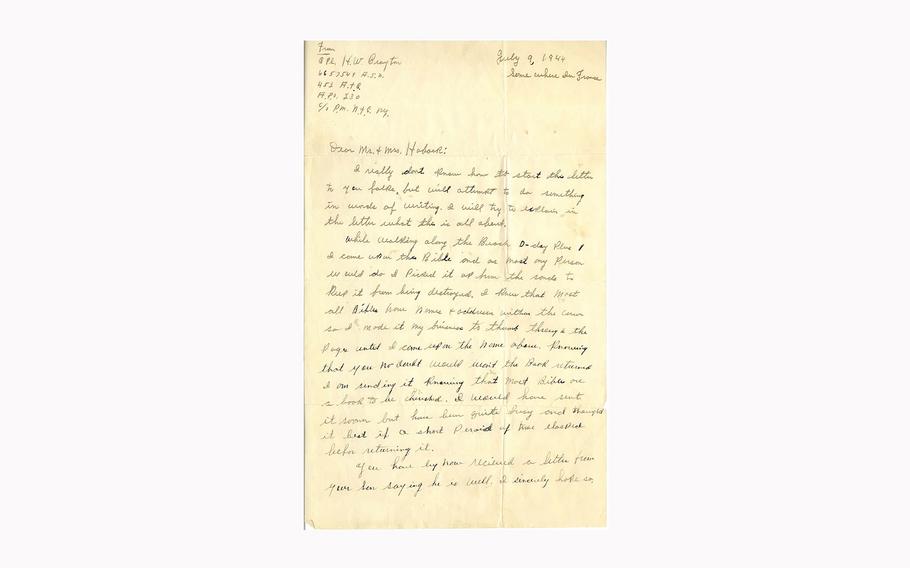 From
Cpl. H.W. Crayton
July 9, 1944
Some where In France
453 A.A.A.
A.P.O. 230
c/o P.M. N.Y.C. Ny.
Dear Mr. + Mrs. Hoback:
I really dont Know how to start this letter
to you folks, but will attempt to do something
in words of writing. I will try to explain in
the letter what this is all about.
While walking along the Beach D-day Plus 1
I come upon this Bible and as most any Person
would do I Picked it up from the sands to
Keep it from being destroyed. I Knew that Most
all Bibles have Names + addresses within the cover
so I made it my business to thumb through the
Pages until I come upon the Name above. Knowing
that you no doubt would want the Book returned
I am sending it Knowing that Most Bibles are
a book to be cherished. I would have sent
it sooner but have been quite busy and thought
it best if a short Period of time elapsed
before returning it.
You have by Now received a letter from
your Son saying he is well. I sincerely hope so,